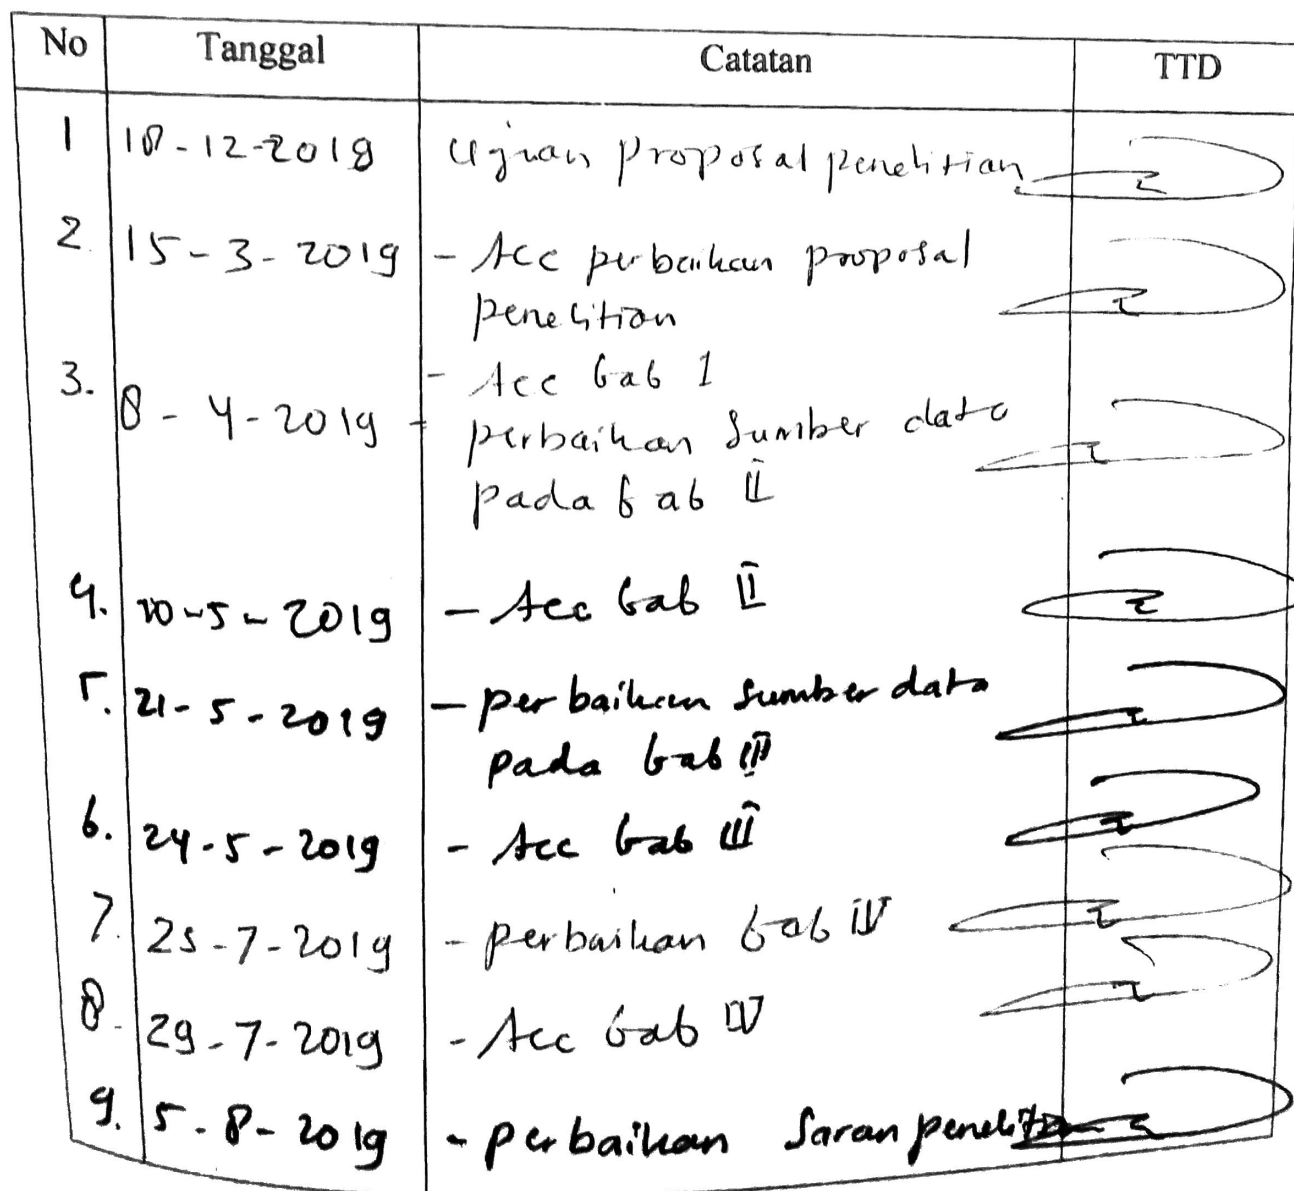 No Tanggal Catatan TTD
1 18-12-2018 Ujian proposal penelitian
2. 15-3-2019 - Acc perbaikan proposal
penelitian
3. - Acc bab I
8-4-2019 - perbaikan sumber data
pada bab II
4. 10-5-2019 - Acc bab II
5. 21-5-2019 - perbaikan sumber data
pada bab III
6. 24-5-2019 - Acc bab III
7. 25-7-2019 - perbaikan bab IV
8. 29-7-2019 - Acc bab IV
9. 5-8-2019 - perbaikan saran penelitian